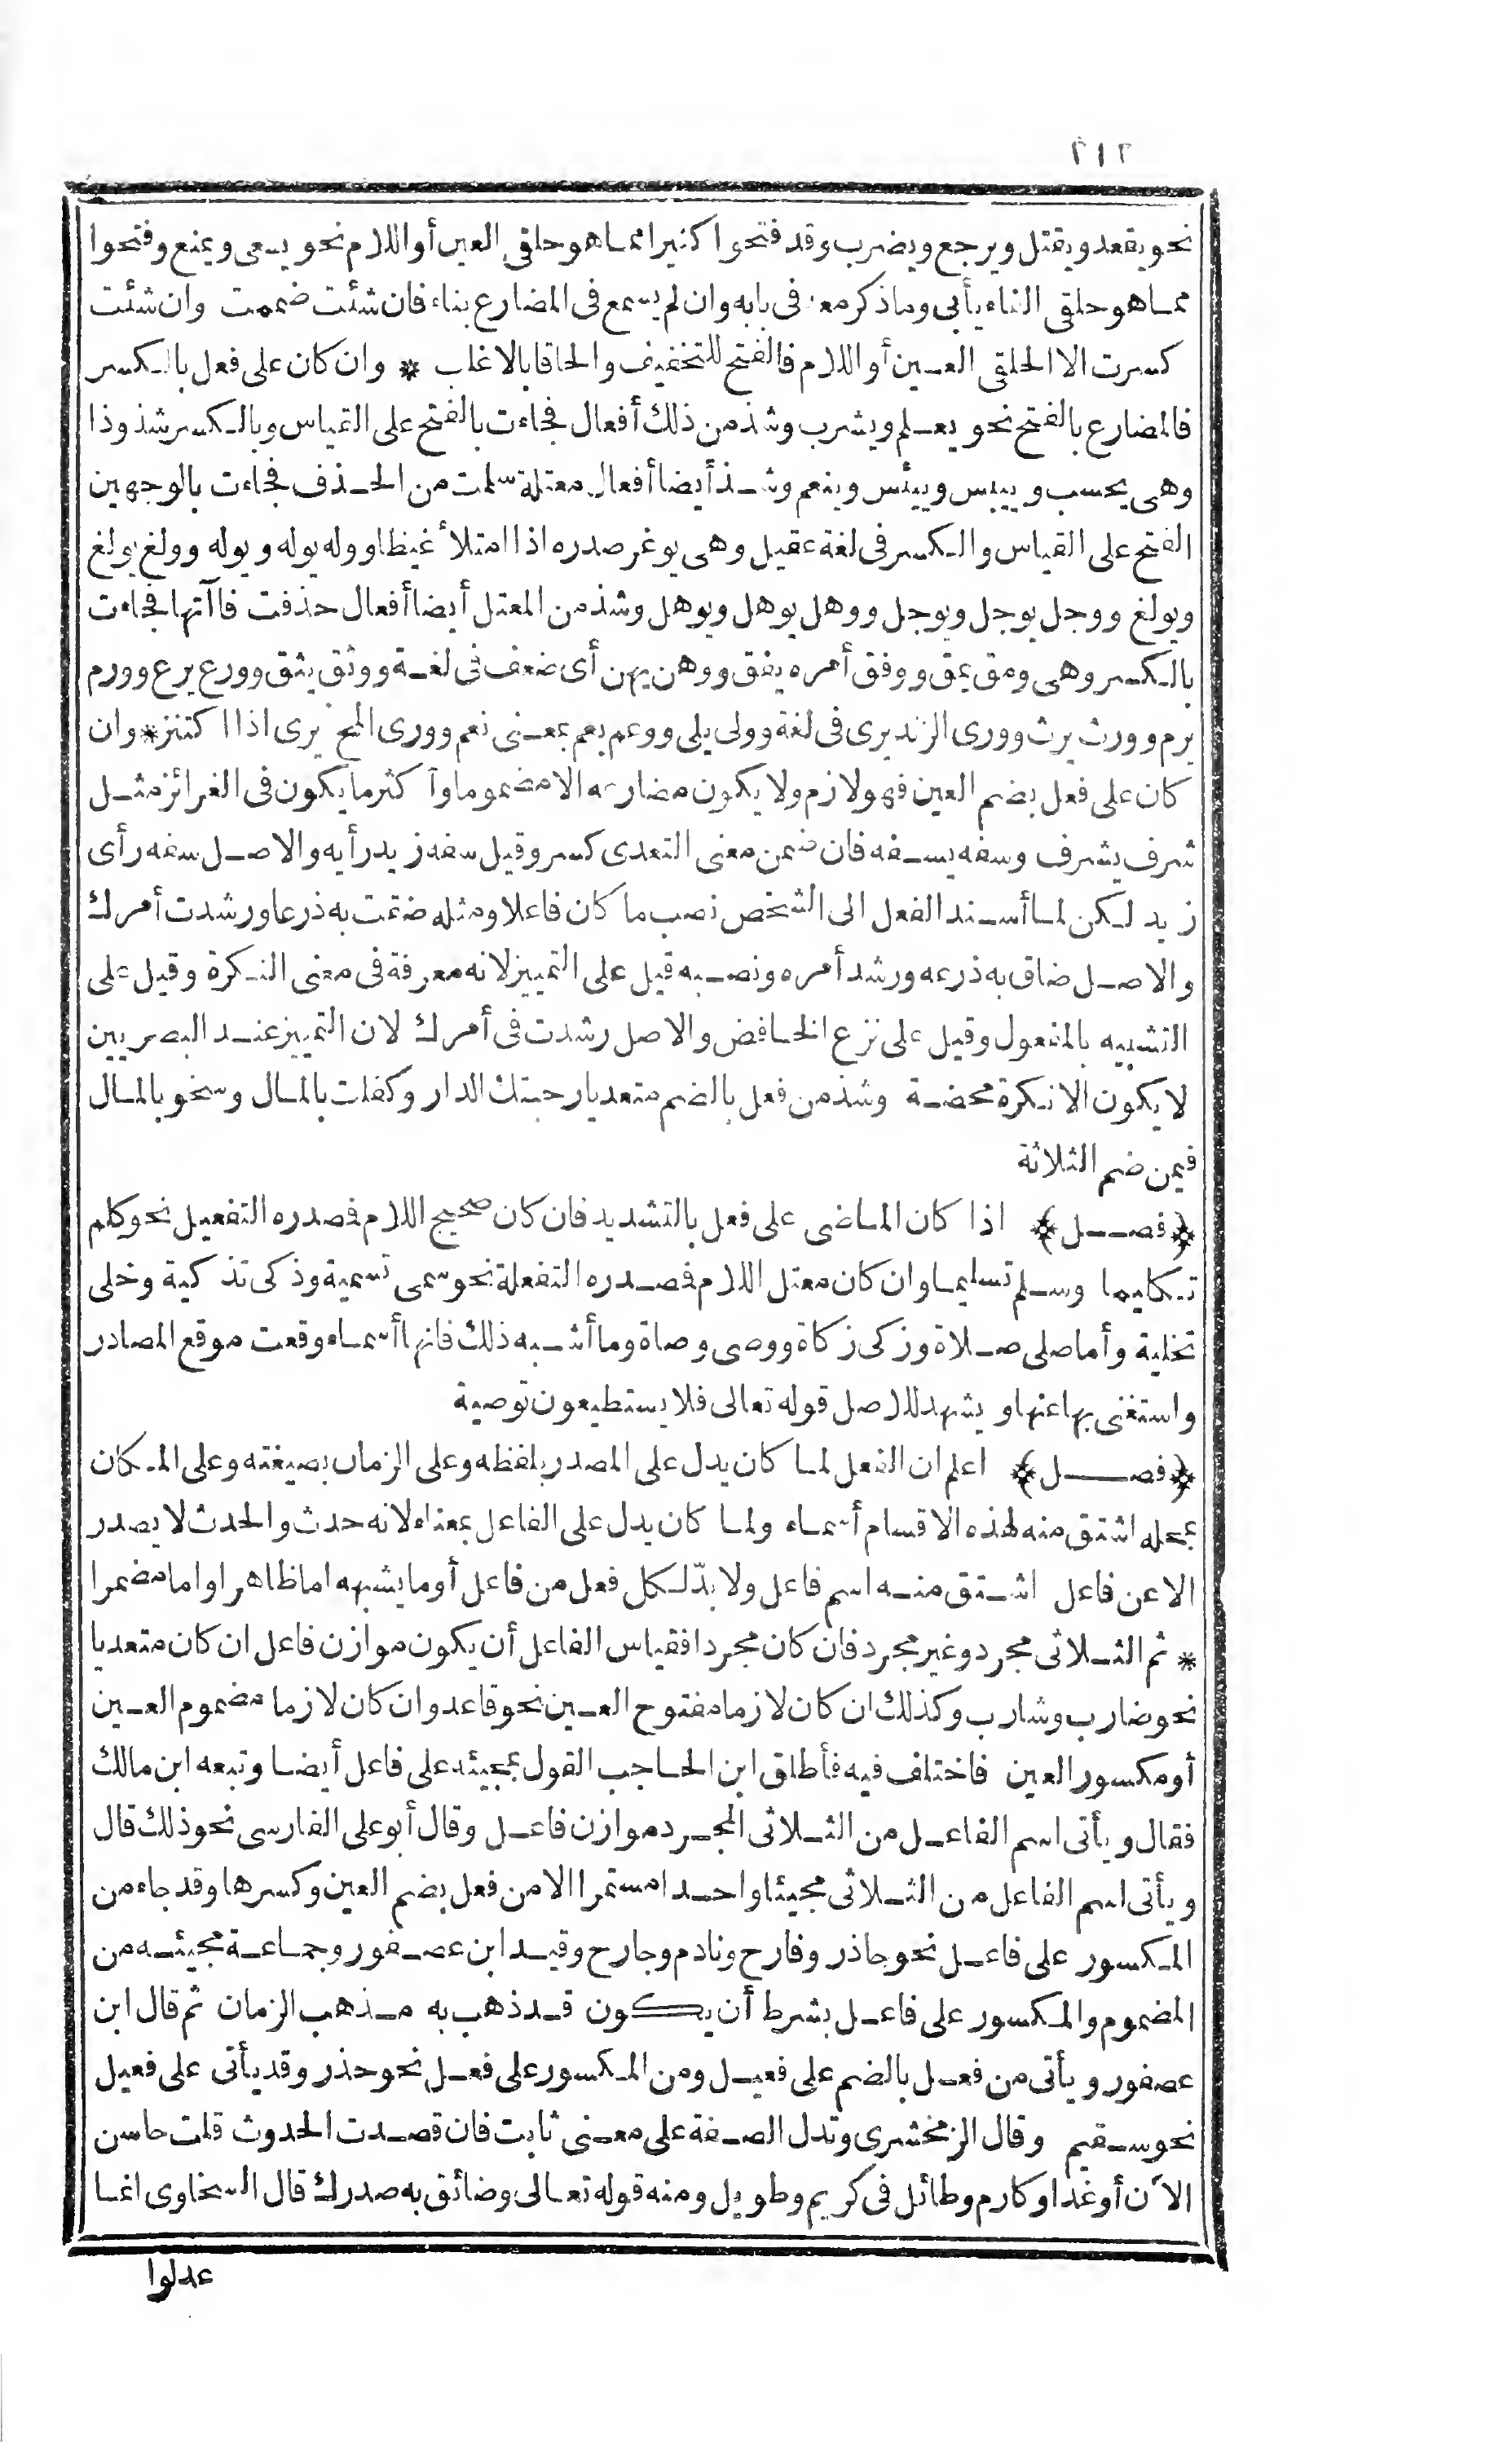 ٢١٢
نحو يقعد ويقتل ويرجع ويضرب وقد فتحوا كثيرا مما هو حلقى العين أو اللام نحو يسعى ويمنع وفتحوا
مما هو حلقى الفاء يأبى وما ذكر معه فى بابه وان لم يسمع فى المضارع بناء فان شئت ضممت وان شئت
كسرت الا الحلقى العين أو اللام فالفتح للتخفيف والحاقا بالاغلب * وان كان على فعل بالكسر
فالمضارع بالفتح نحو يعلم ويشرب وشذ من ذلك أفعال فجاءت بالفتح على القياس وبالكسر شذوذا
وهى يحسب وييبس وييئس وينعم وشذ أيضا أفعال معتلة سلمت من الحذف فجاءت بالوجهين
الفتح على القياس والكسر فى لغة عقيل وهى يوغر صدره اذا امتلأ غيظا ووله يوله ويوله وولغ يولغ
ويولغ ووجل يوجل ويوجل ووهل يوهل ويوهل وشذ من المعتل أيضا أفعال حذفت فاآتها فجاءت
بالكسر وهى ومق يمق ووفق أمره يفق ووهن يهن أى ضعف فى لغة ووثق يثق وورع يرع وورم
يرم وورث يرث وورى الزند يرى فى لغة وولى يلى ووعم يعم بمعنى نعم وورى المخ يرى اذا اكتنز * وان
كان على فعل بضم العين فهو لازم ولا يكون مضارعه الا مضموما وأكثر ما يكون فى الغرائز مثل
شرف يشرف وسفه يسفه فان ضمن معنى التعدى كسر وقيل سفه زيد رأيه والاصل سفه رأى
زيد لكن لما أسند الفعل الى الشخص نصب ما كان فاعلا ومثله ضقت به ذرعا ورشدت أمرك
والاصل ضاق به ذرعه ورشد أمره ونصبه قيل على التمييز لانه معرفة فى معنى النكرة وقيل على
التشبيه بالمفعول وقيل على نزع الخافض والاصل رشدت فى أمرك لان التمييز عند البصريين
لا يكون الا نكرة محضة وشذ من فعل بالضم متعديا رحبتك الدار وكفلت بالمال وسخو بالمال
فيمن ضم الثلاثة
﴿فصل﴾ اذا كان الماضى على فعل بالتشديد فان كان صحيح اللام فمصدره التفعيل نحو كلم
تكليما وسلم تسليما وان كان معتل اللام فمصدره التفعلة نحو سمى تسمية وذكى تذكية وخلى
تخلية وأما صلى صلاة وزكى زكاة ووصى وصاة وما أشبه ذلك فانها أسماء وقعت موقع المصادر
واستغنى بها عنها ويشهد للاصل قوله تعالى فلا يستطيعون توصية
﴿فصل﴾ اعلم ان الفعل لما كان يدل على المصدر بلفظه وعلى الزمان بصيغته وعلى المكان
بمحله اشتق منه لهذه الاقسام أسماء ولما كان يدل على الفاعل بمعناه لانه حدث والحدث لا يصدر
الا عن فاعل اشتق منه اسم فاعل ولا بدّ لكل فعل من فاعل أو ما يشبهه اما ظاهرا واما مضمرا
* ثم الثلاثى مجرد وغير مجرد فان كان مجردا فقياس الفاعل أن يكون موازن فاعل ان كان متعديا
نحو ضارب وشارب وكذلك ان كان لازما مفتوح العين نحو قاعد وان كان لازما مضموم العين
أو مكسور العين فاختلف فيه فأطلق ابن الحاجب القول بمجيئه على فاعل أيضا وتبعه ابن مالك
فقال ويأتى اسم الفاعل من الثلاثى المجرد موازن فاعل وقال أبو على الفارسى نحو ذلك قال
ويأتى اسم الفاعل من الثلاثى مجيئا واحدا مستمرا الا من فعل بضم العين وكسرها وقد جاء من
المكسور على فاعل نحو حاذر وفارح ونادم وجارح وقيد ابن عصفور وجماعة مجيئه من
المضموم والمكسور على فاعل بشرط أن يكون قد ذهب به مذهب الزمان ثم قال ابن
عصفور ويأتى من فعل بالضم على فعيل ومن المكسور على فعل نحو حذر وقد يأتى على فعيل
نحو سقيم وقال الزمخشرى وتدل الصفة على معنى ثابت فان قصدت الحدوث قلت حاسن
الآن أو غدا وكارم وطائل فى كريم وطويل ومنه قوله تعالى وضائق به صدرك قال السخاوى انما
عدلوا